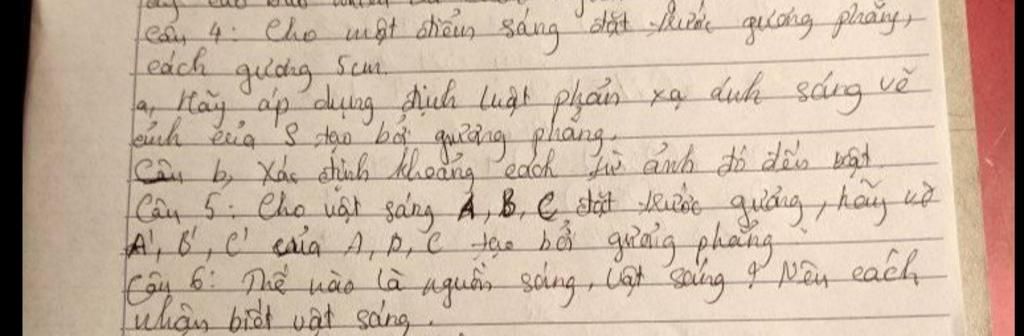 Câu 4: Cho một điểm sáng đặt trước gương phẳng,
cách gương 5cm.
a, Hãy áp dụng định luật phản xạ ánh sáng vẽ
ảnh của S tạo bởi gương phẳng.
Câu b, Xác định khoảng cách từ ảnh đó đến vật
Câu 5: Cho vật sáng A, B, C đặt trước gương, hãy vẽ
A', B', C' của A, B, C tạo bởi gương phẳng
Câu 6: Thế nào là nguồn sáng, vật sáng? Nêu cách
nhận biết vật sáng.